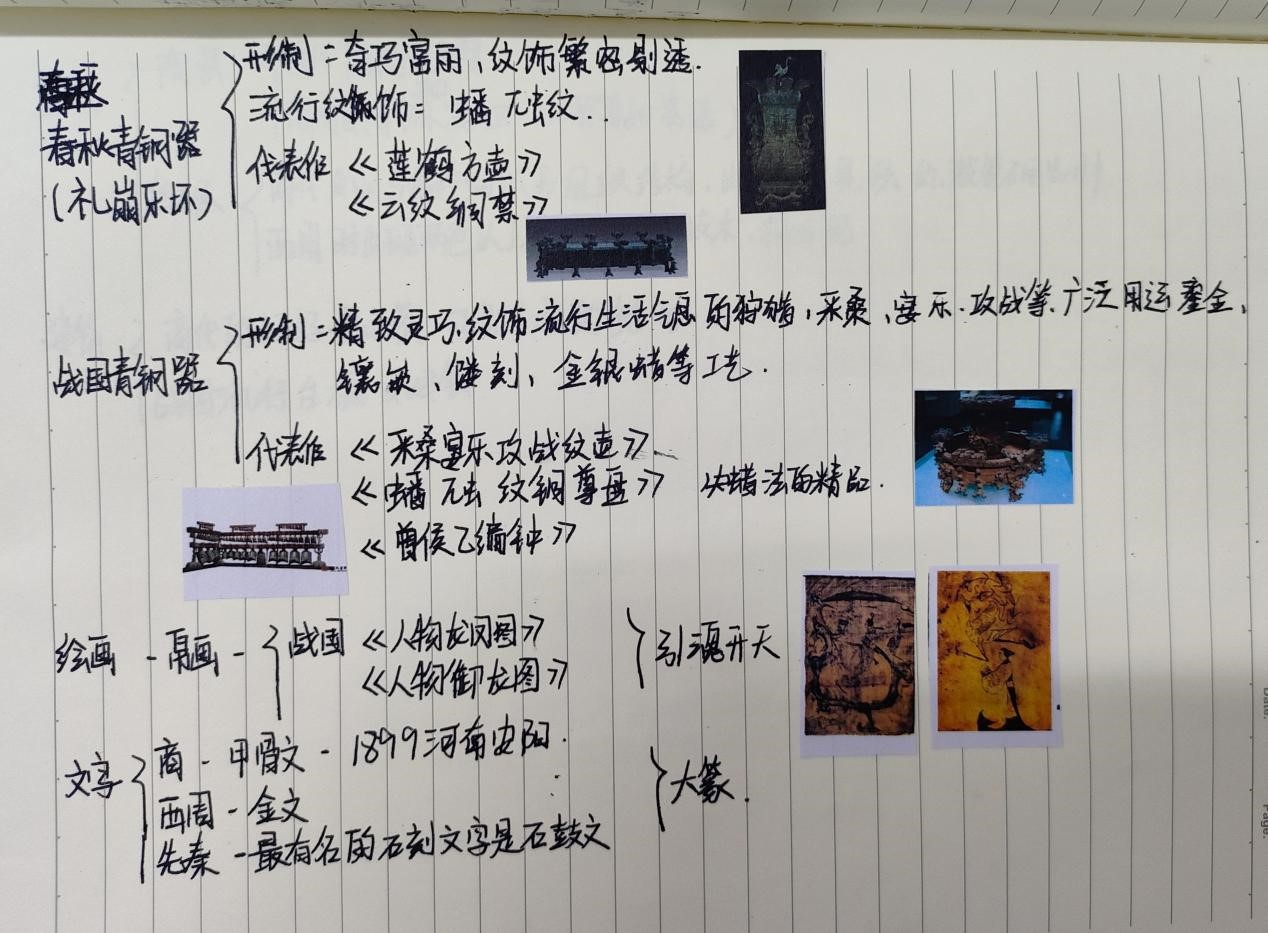 春秋青铜器
(礼崩乐坏)
形制=奇巧富丽、纹饰繁密剔透.
流行纹饰=蟠虺纹..
代表作 《莲鹤方壶》
《云纹铜禁》
战国青铜器
形制=精致灵巧、纹饰流行生活气息的狩猎,采桑、宴乐、攻战等、广泛用运鎏金、
镶嵌、镂刻、金银错等工艺.
代表作 《采桑宴乐攻战纹壶》
《蟠虺纹铜尊盘》 失蜡法的精品.
《曾侯乙编钟》
绘画 - 帛画 - 战国 《人物龙凤图》
《人物御龙图》
引魂升天
文字
商 - 甲骨文 - 1899河南安阳.
西周 - 金文
先秦 - 最有名的石刻文字是石鼓文
大篆.
Date.
Page.